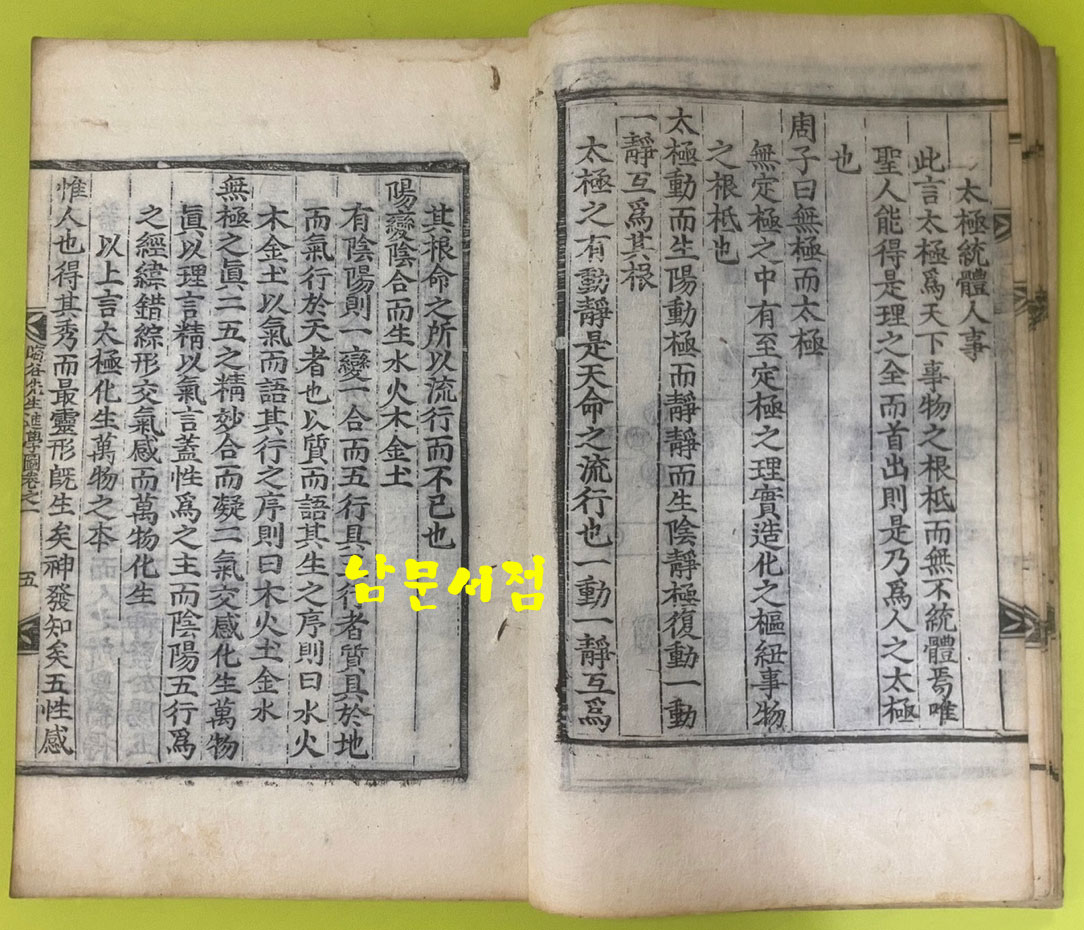 太極統體人事
此言太極爲天下事物之根柢而無不統體焉唯
聖人能得是理之全而首出則是乃爲人之太極
也
周子曰無極而太極
無定極之中有至定極之理實造化之樞紐事物
之根柢也
太極動而生陽動極而靜靜而生陰靜極復動一動
一靜互爲其根
太極之有動靜是天命之流行也一動一靜互爲
其根命之所以流行而不已也
陽變陰合而生水火木金土
有陰陽則一變一合而五行具行者質具於地
而氣行於天者也以質而語其生之序則曰水火
木金土以氣而語其行之序則曰木火土金水
無極之眞二五之精妙合而凝二氣交感化生萬物
眞以理言精以氣言蓋性爲之主而陰陽五行爲
之經緯錯綜形交氣感而萬物化生
以上言太極化生萬物之本
惟人也得其秀而最靈形旣生矣神發知矣五性感
谷先生進學圖卷之一
五
남문서점